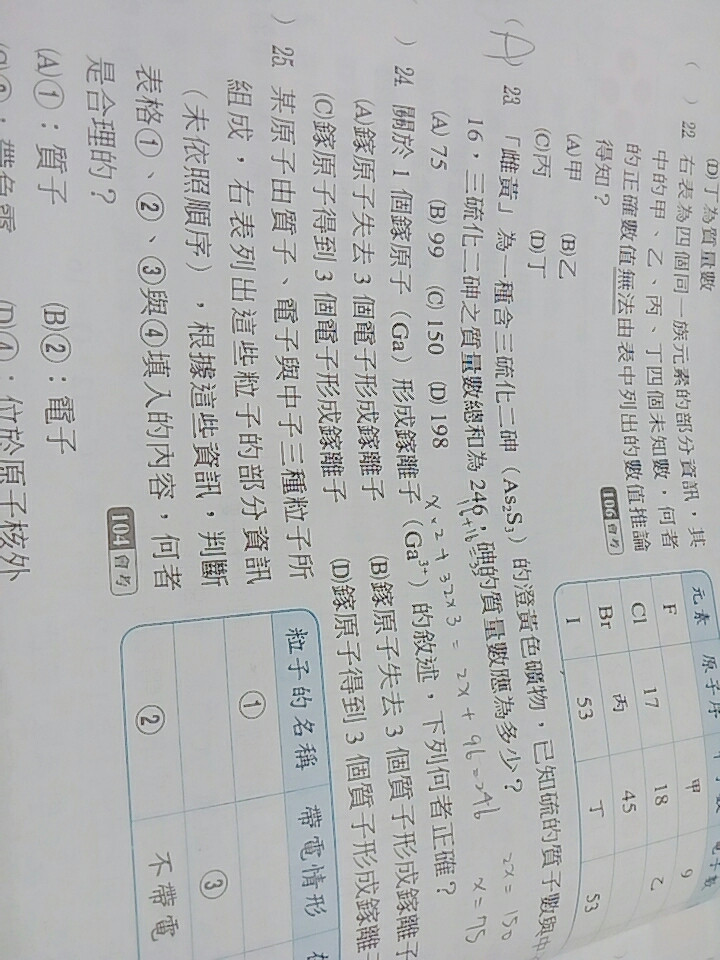 (D)丁為質量數
( ) 22. 右表為四個同一族元素的部分資訊，其
中的甲、乙、丙、丁四個未知數，何者
的正確數值無法由表中列出的數值推論
得知？
106會考
(A)甲 (B)乙
(C)丙 (D)丁
元素 原子序 電子數
F 甲 9
Cl 17 18 乙
Br 丙 45
I 53 丁 53
(A) 23. 「雌黃」為一種含三硫化二砷（As₂S₃）的澄黃色礦物，已知硫的質子數與中
16，三硫化二砷之質量數總和為 246；砷的質量數應為多少？
(A) 75 (B) 99 (C) 150 (D) 198
16+16=32
32×3 = 2x + 96 = 246
2x = 150
x = 75
) 24. 關於 1 個鎵原子（Ga）形成鎵離子（Ga³⁺）的敘述，下列何者正確？
(A)鎵原子失去 3 個電子形成鎵離子 (B)鎵原子失去 3 個質子形成鎵離子
(C)鎵原子得到 3 個電子形成鎵離子 (D)鎵原子得到 3 個質子形成鎵離
) 25. 某原子由質子、電子與中子三種粒子所
組成，右表列出這些粒子的部分資訊
（未依照順序），根據這些資訊，判斷
表格①、②、③與④填入的內容，何者
是合理的？
104會考
(A)①：質子 (B)②：電子
(D)④：位於原子核外
粒子的名稱 帶電情形
①
③
② 不帶電